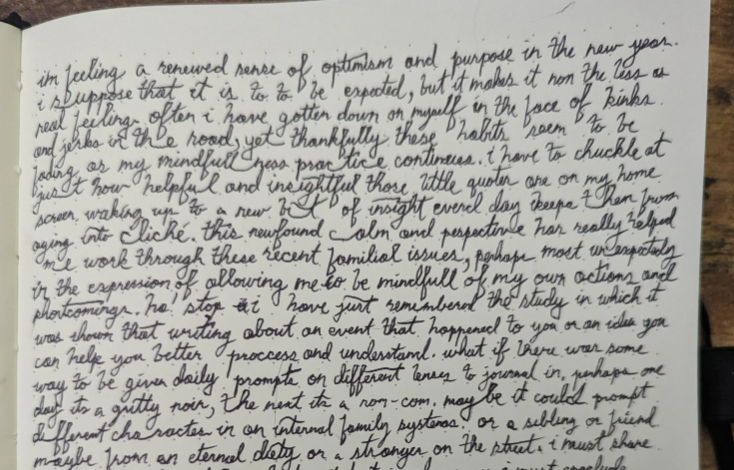 im feeling a renewed sense of optimism and purpose in the new year.
i suppose that it is to to be expected, but it makes it non the less as
real feeling. often i have gotten down on myself in the face of kinks
and jerks in the road, yet thankfully these habits seem to be
fading as my mindfullness practice continues. i have to chuckle at
just how helpful and insightful those little quotes are on my home
screen, waking up to a new bit of insight everd day keeps them from
aging into cliché. this newfound calm and pespective has really helped
me work through these recent familial issues, perhaps most unexpectedly
in the expression of allowing me to be mindfull of my own actions and
shortcomings. ha! stop i have just remembered the study in which it
was shown that writing about an event that happened to you or an idea you
can help you better proccess and understand. what if there was some
way to be given daily prompts on different lenses to journal in, perhaps one
day its a gritty noir, the next its a rom-com. maybe it could prompt
different charactes in an internal family systems. or a sibling or friend
maybe from an eternal diety or a stranger on the street. i must share